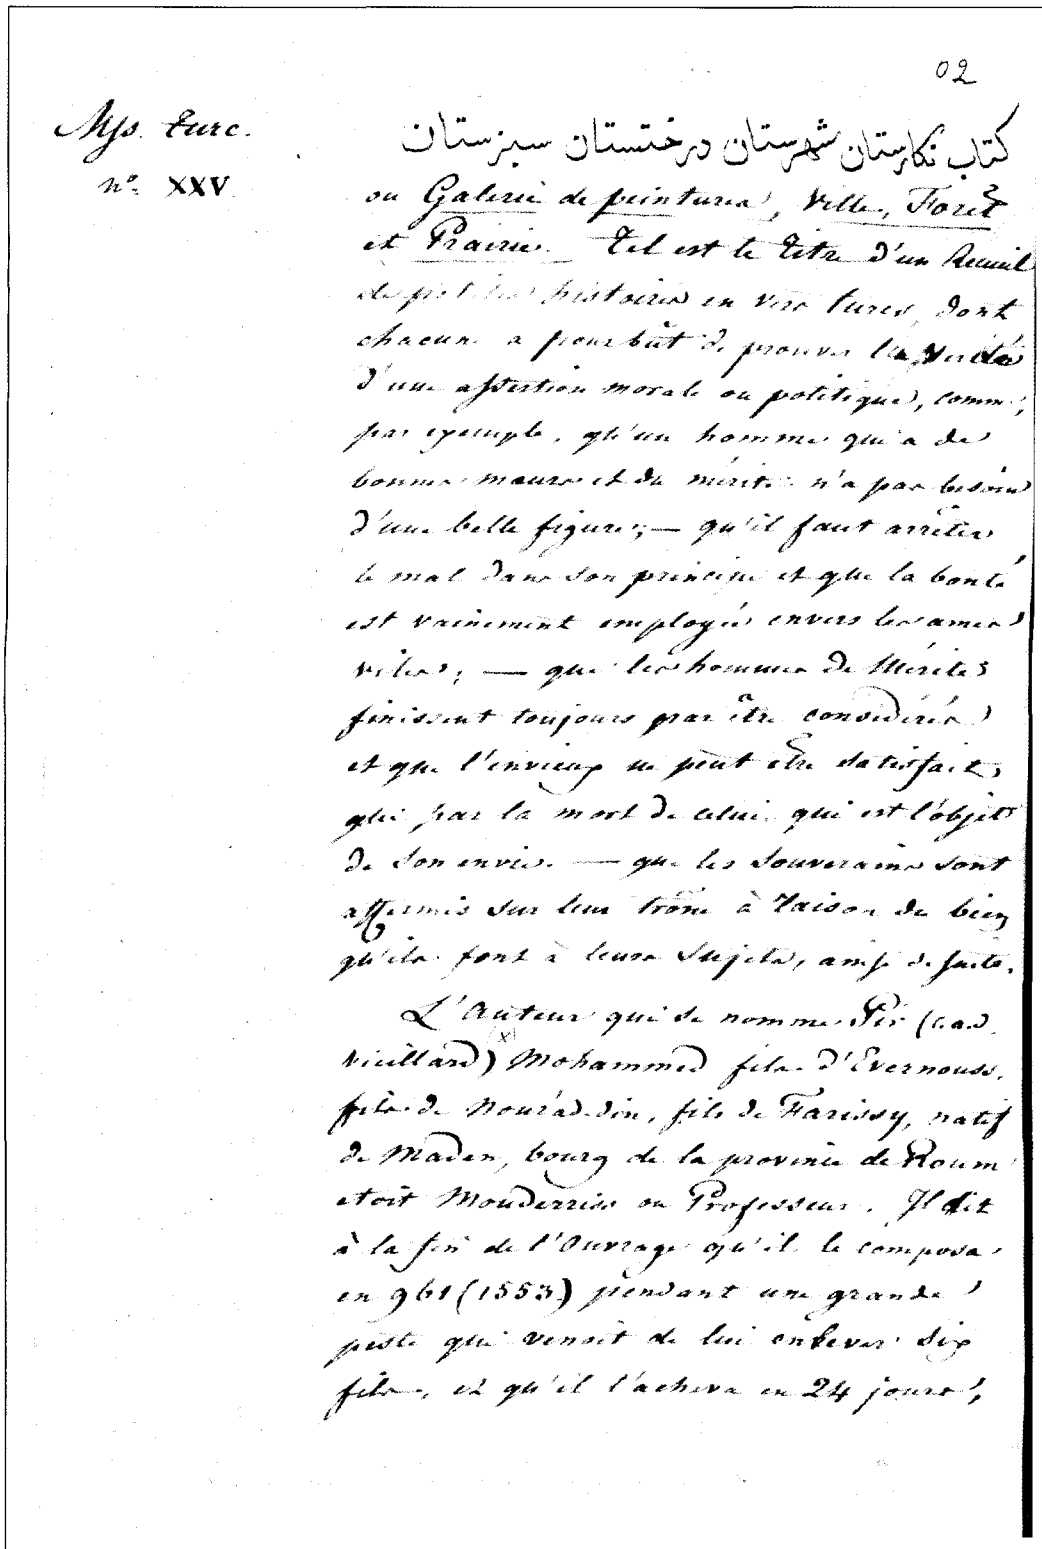 02
Mss. Turc.
nº XXV
كتاب نكارستان شهرستان درختستان سبزستان
ou Galerie de peintures, Ville, Forêt
et Prairie. Tel est le titre d'un Recueil
de petites histoires en vers turcs, dont
chacune a pour bût de prouver la verité
d'une assertion morale ou politique, comme,
par exemple, qu'un homme qui a de
bonnes mœurs et du mérite n'a pas besoin
d'une belle figure; — qu'il faut arrêter
le mal dans son principe et que la bonté
est vainement employée envers les ames
viles; — que les hommes de Mérite
finissent toujours par être considérés
et que l'envieux ne peut être satisfait
que par la mort de celui qui est l'objet
de son envie. — que les Souverains sont
affermis sur leur trône à raison du bien
qu'ils font à leurs Sujets, ainsi de suite.
L'Auteur qui se nomme Pir (c.a.d.
(x)
Vieillard) Mohammed fils d'Evernouss,
fils de Nourad-din, fils de Farissy, natif
de Maden, bourg de la province de Roum
etoit Mouderriss ou Professeur. Il dit
à la fin de l'Ouvrage qu'il le composa
en 961 (1553) pendant une grande
peste qui venoit de lui enlever six
fils, et qu'il l'acheva en 24 jours,